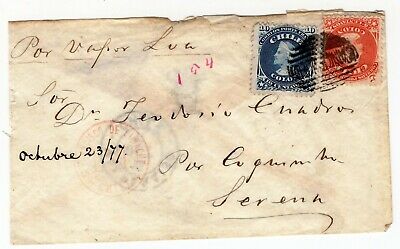 Por Vapor Lua
CHILE
COLON
COLON
1 04
Sor
Dn Teodosio Cuadros
Octubre 23/77
Por Coquimbo
Serena